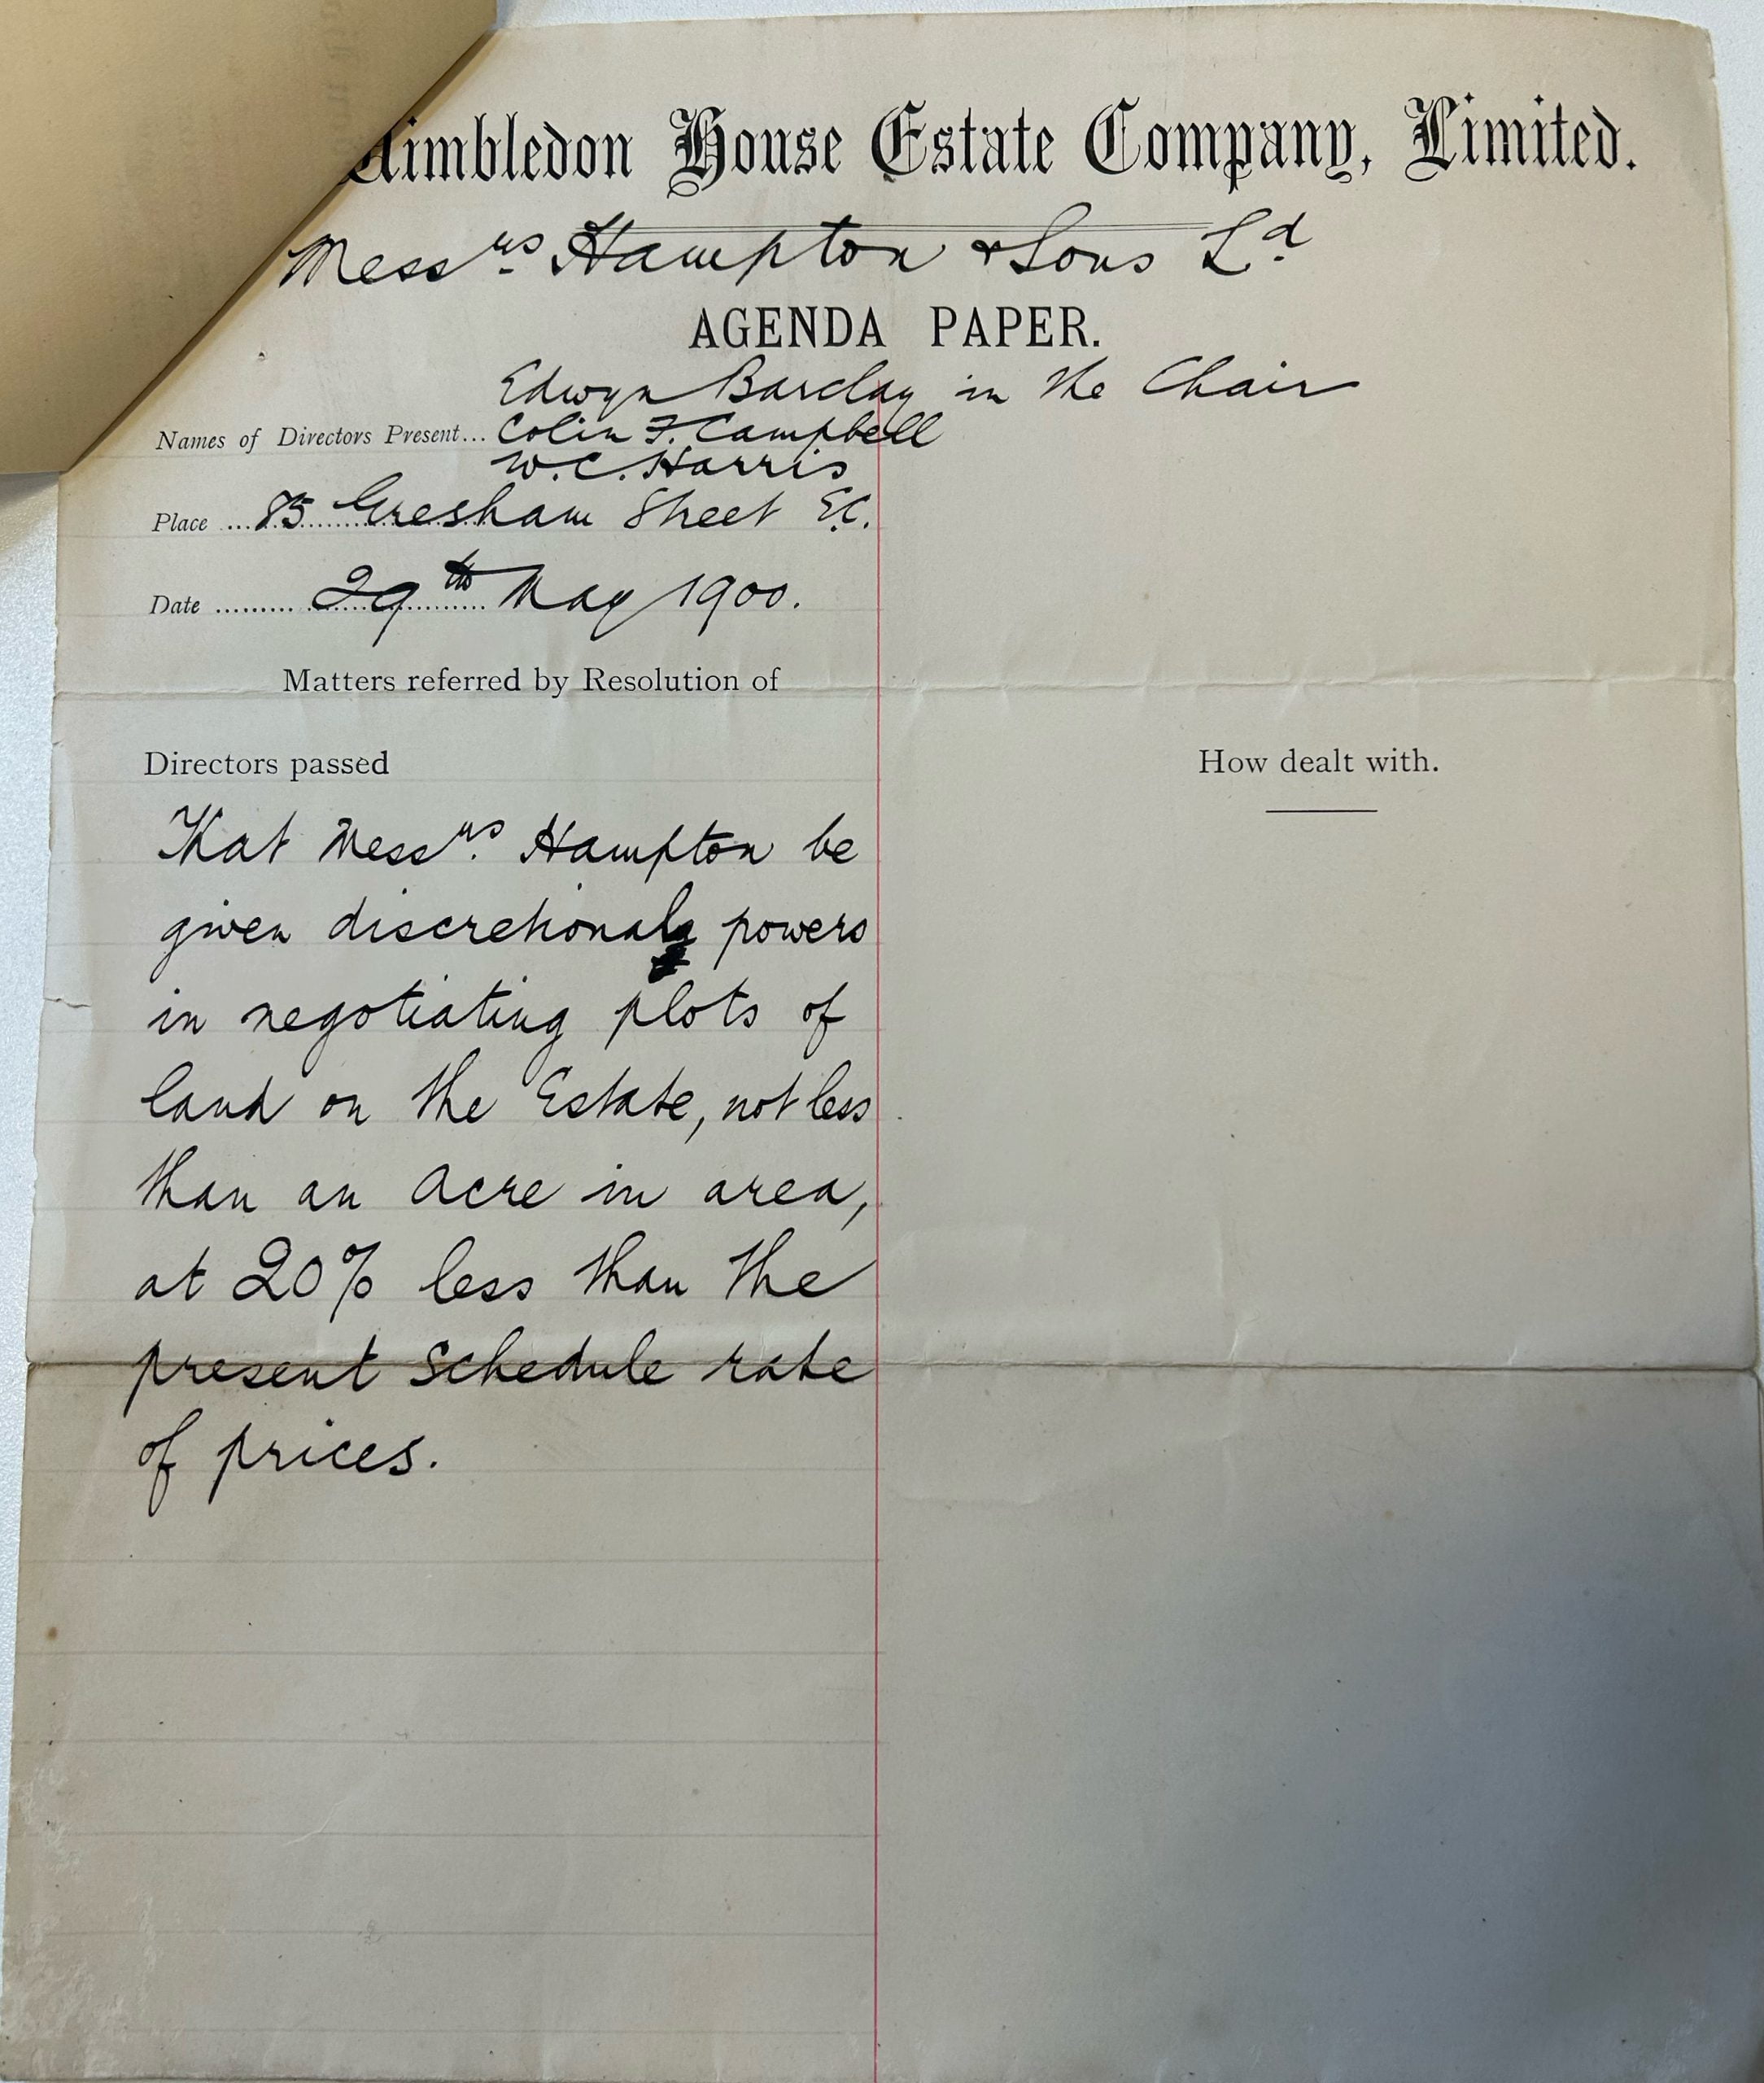 Wimbledon House Estate Company, Limited.
Messrs. Hampton & Sons Ld.
AGENDA PAPER.
Edwyn Barclay in the Chair
Names of Directors Present... Colin F. Campbell
W.C. Harris
Place ... 85 Gresham Street E.C.
Date ......... 29th May 1900.
Matters referred by Resolution of
Directors passed
How dealt with.
That Messrs. Hampton be
given discretional powers
in negotiating plots of
land on the Estate, not less
than an acre in area,
at 20% less than the
present schedule rate
of prices.